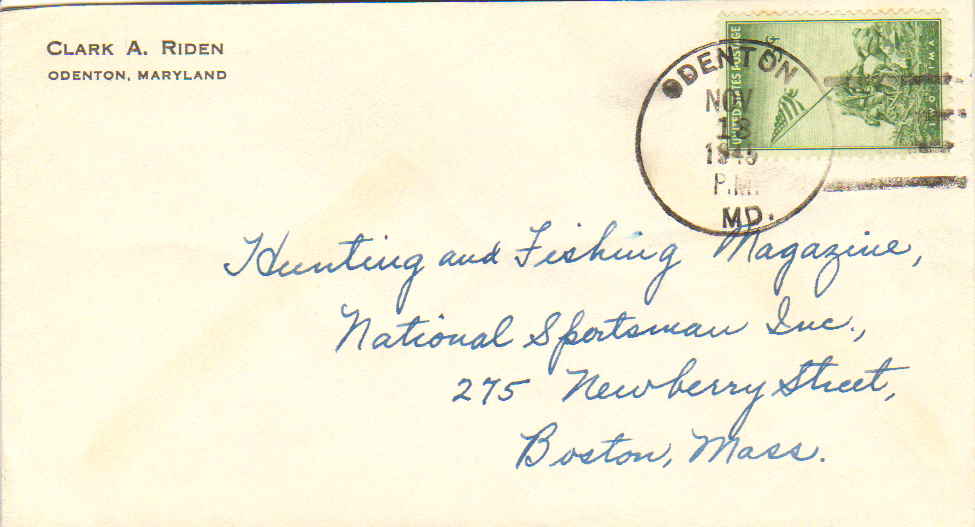 CLARK A. RIDEN
ODENTON, MARYLAND
ODENTON
NOV
13
1945
P.M.
MD.
UNITED STATES POSTAGE
Hunting and Fishing Magazine,
National Sportsman Inc.,
275 Newberry Street,
Boston, Mass.